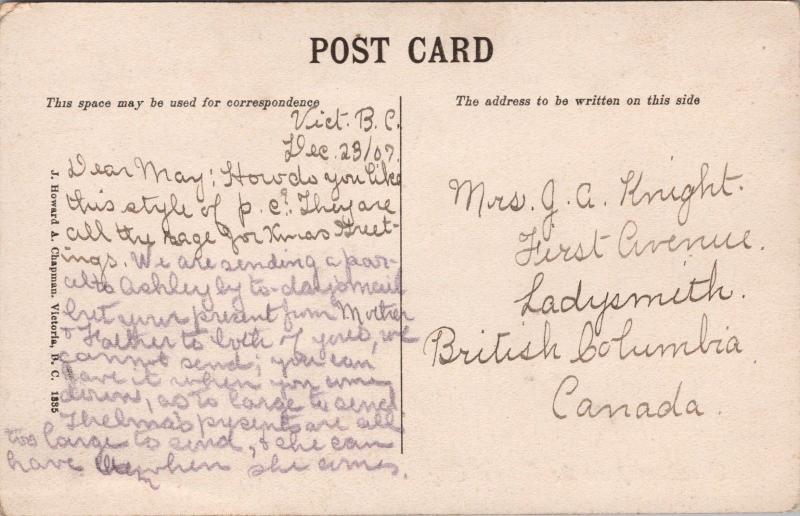 POST CARD
This space may be used for correspondence
The address to be written on this side
Vict. B. C.
Dec. 23/07.
Dear May: How do you like
this style of p. c.? They are
all the rage for Xmas Greet-
ings. We are sending a par-
al to Ashley by to-day's mail
but your present from Mother
& Father to both of you, we
cannot send; you can
have it when you come
down, as to large to send
Thelma's presents are all
too large to send, & she can
have them when she comes.
Mrs. J. A. Knight.
First Avenue.
Ladysmith.
British Columbia
Canada.
J. Howard A. Chapman, Victoria, B. C. 1385